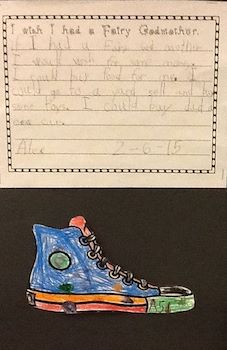 I wish I had a Fairy Godmother.
If I had a Fairy God mother
I would wish for some money.
I could buy food for me. I
could go to a yard sell and buy
some toys. I could buy dad a
new car.
Alex 2-6-15